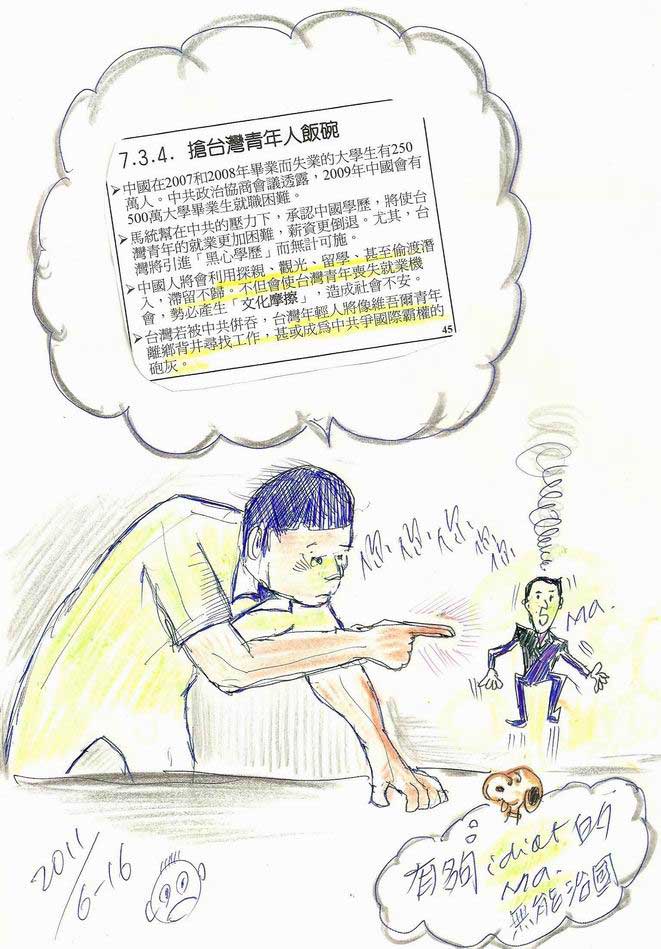 7.3.4. 搶台灣青年人飯碗
➢中國在2007和2008年畢業而失業的大學生有250
萬人。中共政治協商會議透露，2009年中國會有
500萬大學畢業生就職困難。
➢馬統幫在中共的壓力下，承認中國學歷，將使台
灣青年的就業更加困難，薪資更倒退。尤其，台
灣將引進「黑心學歷」而無計可施。
➢中國人將會利用探親、觀光、留學、甚至偷渡潛
入，滯留不歸。不但會使台灣青年喪失就業機
會，勢必產生「文化摩擦」，造成社會不安。
➢台灣若被中共併吞，台灣年輕人將像維吾爾青年
離鄉背井尋找工作，甚或成為中共爭國際霸權的
砲灰。
45
你.你.你.你.你.
Ma.
有夠idiot的
Ma.
無能治國
2011/6-16